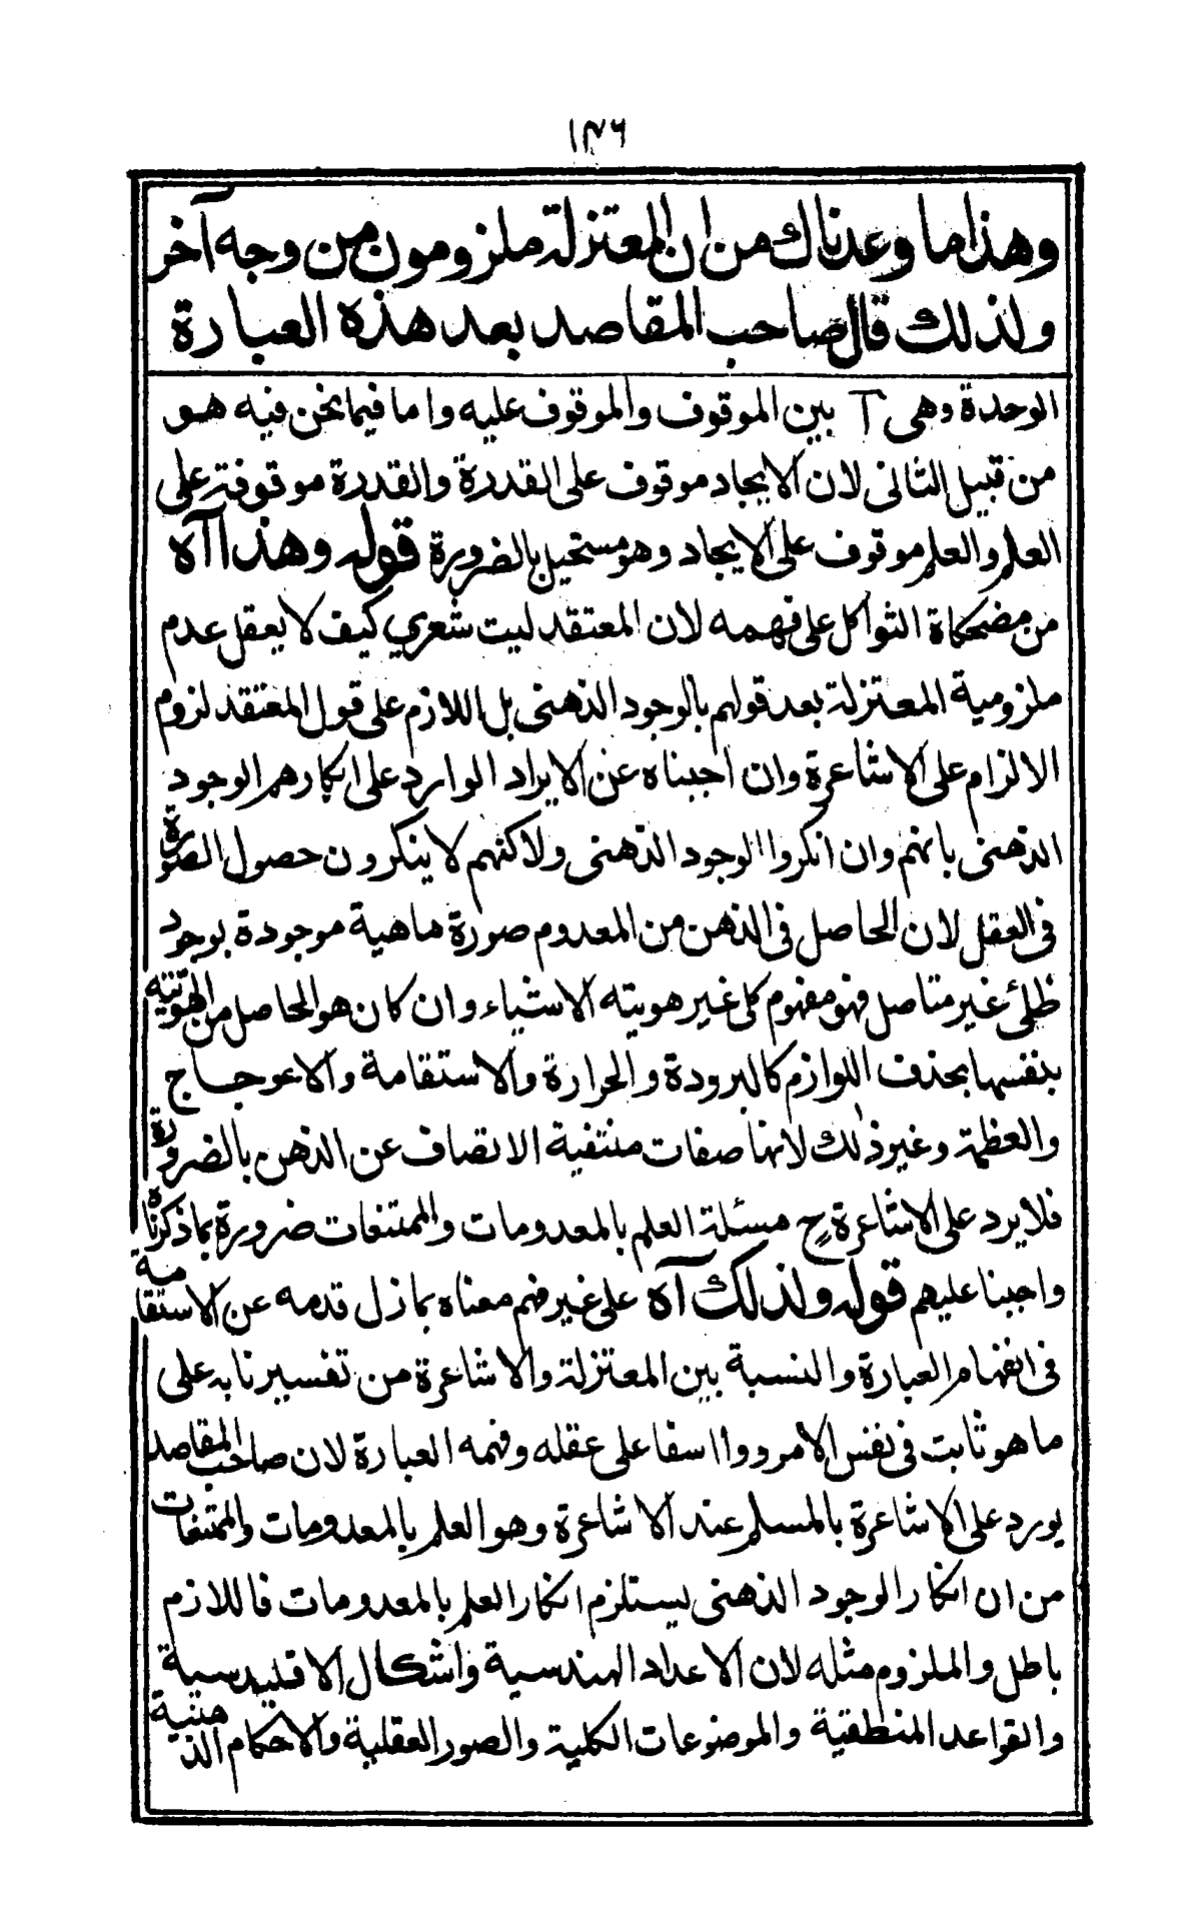 ١٣٦
وهذا ما وعدناك من ان المعتزلة ملزومون من وجه آخر
ولذلك قال صاحب المقاصد بعد هذه العبارة
الوحدة وهى بين الموقوف والموقوف عليه واما فيما نحن فيه هو
من قبيل الثانى لان الايجاد موقوف على القدرة والقدرة موقوفة على
العلم والعلم موقوف على الايجاد وهو مستحيل بالضرورة قوله وهذا آه
من مضحكاة الثواكل على فهمه لان المعتقد ليت شعري كيف لا يعقل عدم
ملزومية المعتزلة بعد قولهم بالوجود الذهنى بل اللازم على قول المعتقد لزوم
الالزام على الاشاعرة وان اجبناه عن الايراد الوارد على انكارهم الوجود
الذهنى بانهم وان انكروا الوجود الذهنى ولاكنهم لا ينكرون حصول الصورة
فى العقل لان الحاصل فى الذهن من المعدوم صورة ماهية موجودة بوجود
ظلى غير متاصل فهو مفهوم كلى غير هويته الاشياء وان كان هو الحاصل من الهوية
بنفسها بحذف اللوازم كالبرودة والحرارة والاستقامة والاعوجاج
والعظمة وغير ذلك لانها صفات منتفية الاتصاف عن الذهن بالضرورة
فلا يرد على الاشاعرة ح مسئلة العلم بالمعدومات والممتنعات ضرورة بما ذكرناه
واجبنا عليهم قوله ولذلك آه على غير فهم معناه بما زل قدمه عن الاستقامة
فى انفهام العبارة والنسبة بين المعتزلة والاشاعرة من تفسيرنا به على
ما هو ثابت فى نفس الامر ووا اسفا على عقله وفهمه العبارة لان صاحب المقاصد
يورد على الاشاعرة بالمسلم عند الاشاعرة وهو العلم بالمعدومات والممتنعات
من ان انكار الوجود الذهنى يستلزم انكار العلم بالمعدومات فاللازم
باطل والملزوم مثله لان الاعداد الهندسية واشكال الاقليدسية
والقواعد المنطقية والموضوعات الكلية والصور العقلية والاحكام الذهنية